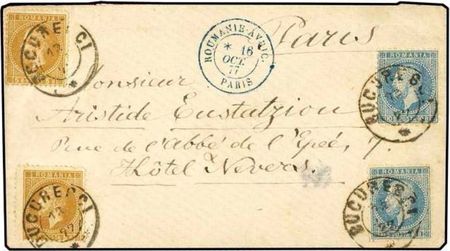 ROMANIA
ROUMANIE-AVRIC.
* 16
OCT
77
PARIS
Paris
BUCURESCI
Monsieur
ROMANIA
BUCURESCI
Aristide Eustatzion
Rue de l'abbé de l'Épée 7
Hôtel Nevers
ROMANIA
BUCURESCI
ROMANIA
BUCURESCI